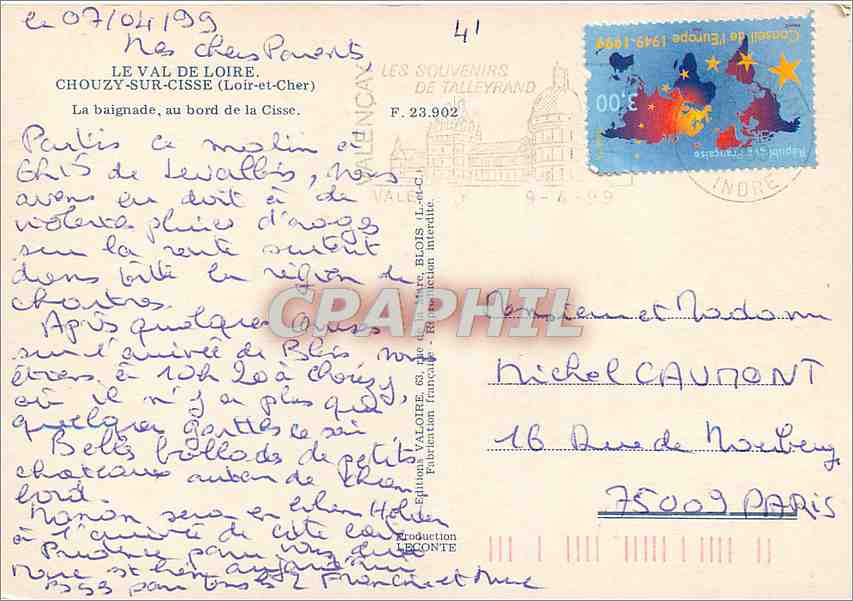 le 07/04/99
Mes chers Parents
41
LE VAL DE LOIRE.
CHOUZY-SUR-CISSE (Loir-et-Cher)
La baignade, au bord de la Cisse.
F. 23.902
Partis ce matin à
6h15 de Levallois, nous
avons eu droit à de
violentes pluies d'orages
sur la route surtout
dans toute la région de
chartres.
Après quelques pauses
sur l'arrivée de Blois nous
étions à 10h20 à Chouzy,
où il n'y a plus que
quelques gouttes ce soir
Belles ballades de petits
chateaux autour de Cham
bord.
Manon sera en
à l'arrivée de cette
Prudence pour vous
Editions VALOIRE, 63, rue de la Mare, BLOIS (L.-et-C.)
Fabrication française - Reproduction interdite.
Production
LECONTE
VALENÇAY
LES SOUVENIRS
DE TALLEYRAND
9-4-99
INDRE
Conseil de l'Europe 1949-1999
3,00
République Française
CPAPHIL
Monsieur et Madame
Michel CAUMONT
16 Rue de Maubeuge
75009 PARIS